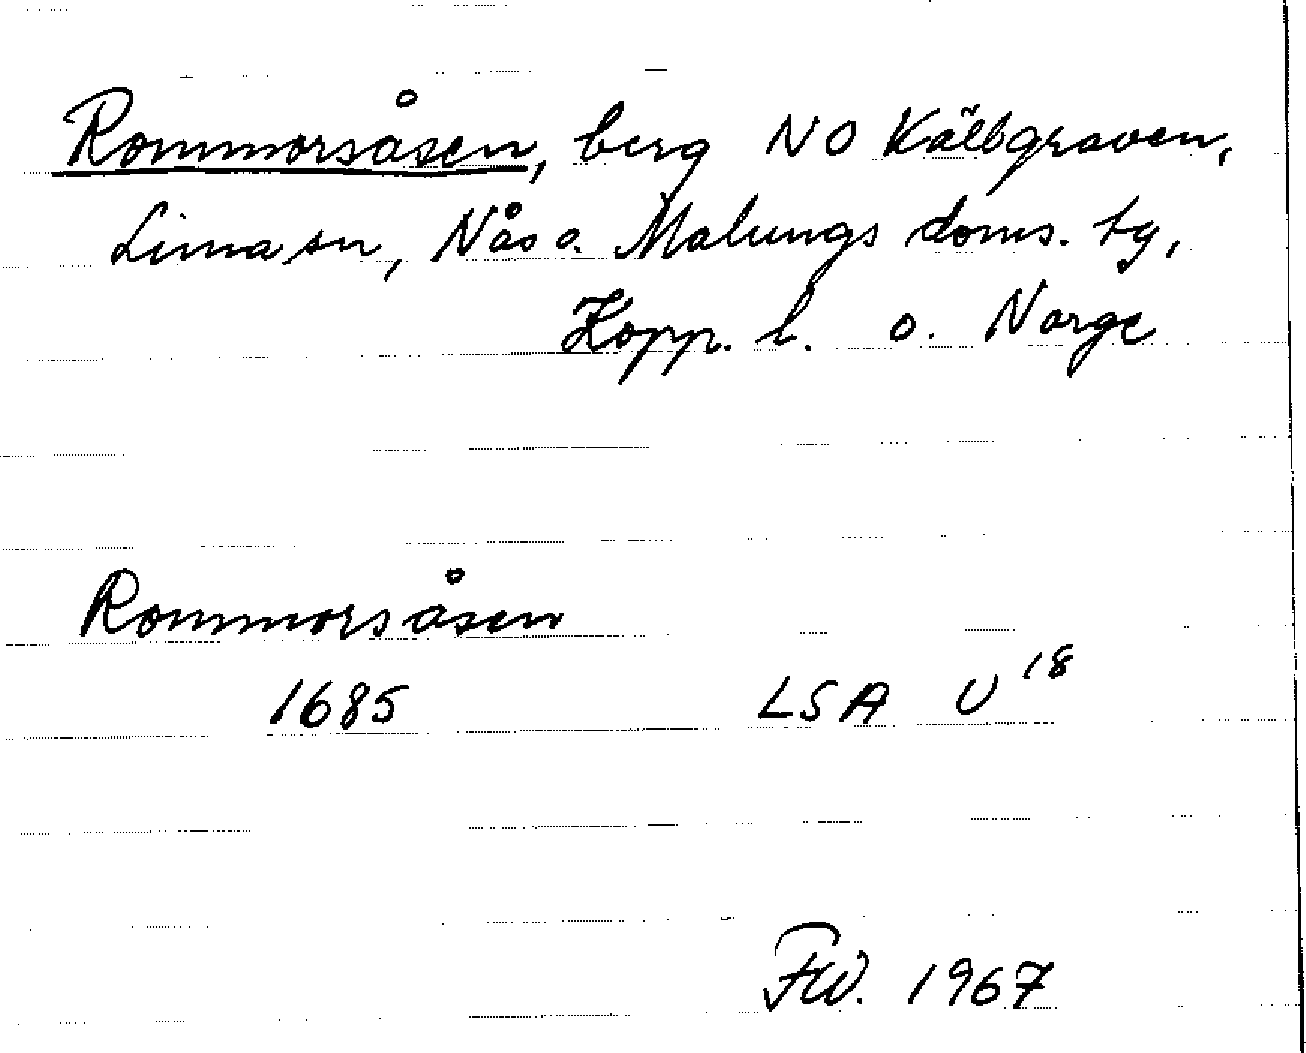 Rommorsåsen, berg NO Källbgraven,
Lima sn, Nås o. Malungs doms. tg,
Kopp. l. o. Norge
Rommorsåsen
1685 LSA U 18
FW. 1967